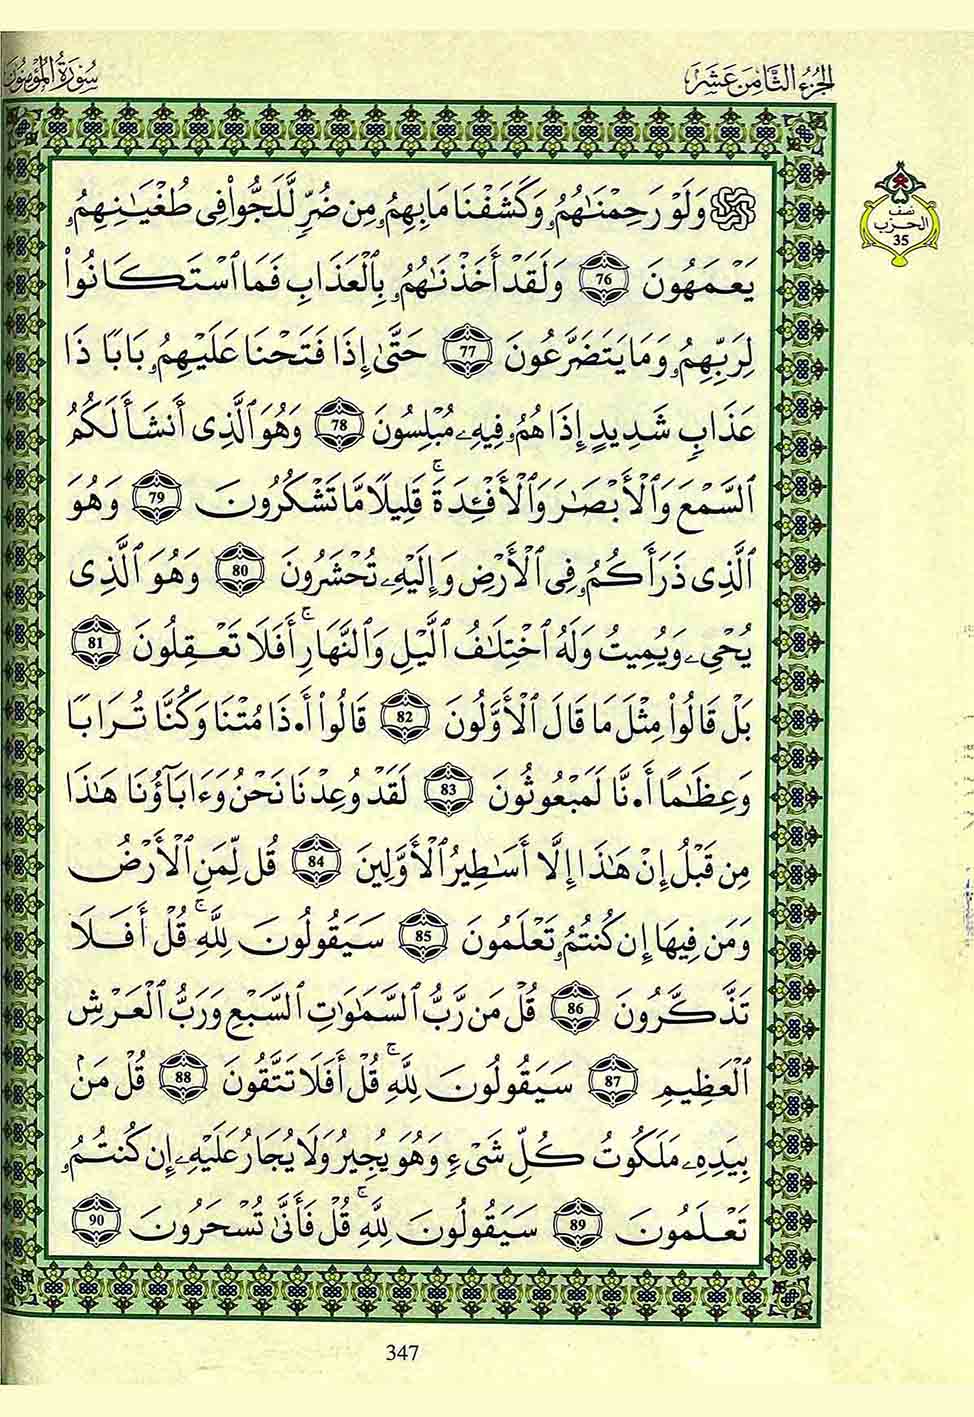 الجزء الثامن عشر
سورة المؤمنون
وَلَوْ رَحِمْنَٰهُمُۥ وَكَشَفْنَا مَا بِهِمُۥ مِن ضُرٍّ لَّلَجُّوا۟ فِى طُغْيَٰنِهِمُۥ
يَعْمَهُونَ 76 وَلَقَدْ أَخَذْنَٰهُمُۥ بِالْعَذَابِ فَمَا اَسْتَكَانُوا۟
لِرَبِّهِمُۥ وَمَا يَتَضَرَّعُونَ 77 حَتَّىٰ إِذَا فَتَحْنَا عَلَيْهِمُۥ بَابًا ذَا
عَذَابٍ شَدِيدٍ إِذَا هُمُۥ فِيهِۦ مُبْلِسُونَ 78 وَهُوَ اَلَّذِى أَنشَأَ لَكُمُ
اُلسَّمْعَ وَالْأَبْصَٰرَ وَالْأَفْـِٔدَةَ ۚ قَلِيلًا مَّا تَشْكُرُونَ 79 وَهُوَ
اَلَّذِى ذَرَأَكُمُۥ فِى اِلْأَرْضِ وَإِلَيْهِۦ تُحْشَرُونَ 80 وَهُوَ اَلَّذِى
يُحْىِۦ وَيُمِيتُ وَلَهُ اُخْتِلَٰفُ اُلَّيْلِ وَالنَّهَارِ ۚ أَفَلَا تَعْقِلُونَ 81
بَلْ قَالُوا۟ مِثْلَ مَا قَالَ اَلْأَوَّلُونَ 82 قَالُوا۟ أَ.ذَا مُتْنَا وَكُنَّا تُرَابًا
وَعِظَٰمًا أَ.نَّا لَمَبْعُوثُونَ 83 لَقَدْ وُعِدْنَا نَحْنُ وَءَابَآؤُنَا هَٰذَا
مِن قَبْلُ إِنْ هَٰذَا إِلَّا أَسَٰطِيرُ اُلْأَوَّلِينَ 84 قُل لِّمَنِ اِلْأَرْضُ
وَمَن فِيهَا إِن كُنتُمُۥ تَعْلَمُونَ 85 سَيَقُولُونَ لِلَّهِ ۚ قُلْ أَفَلَا
تَذَّكَّرُونَ 86 قُلْ مَن رَّبُّ اُلسَّمَٰوَٰتِ اِلسَّبْعِ وَرَبُّ اُلْعَرْشِ
اِلْعَظِيمِ 87 سَيَقُولُونَ لِلَّهِ ۚ قُلْ أَفَلَا تَتَّقُونَ 88 قُلْ مَنۢ
بِيَدِهِۦ مَلَكُوتُ كُلِّ شَىْءٍ وَهُوَ يُجِيرُ وَلَا يُجَارُ عَلَيْهِۦ إِن كُنتُمُۥ
تَعْلَمُونَ 89 سَيَقُولُونَ لِلَّهِ ۚ قُلْ فَأَنَّىٰ تُسْحَرُونَ 90
نصف
الحزب
35
347